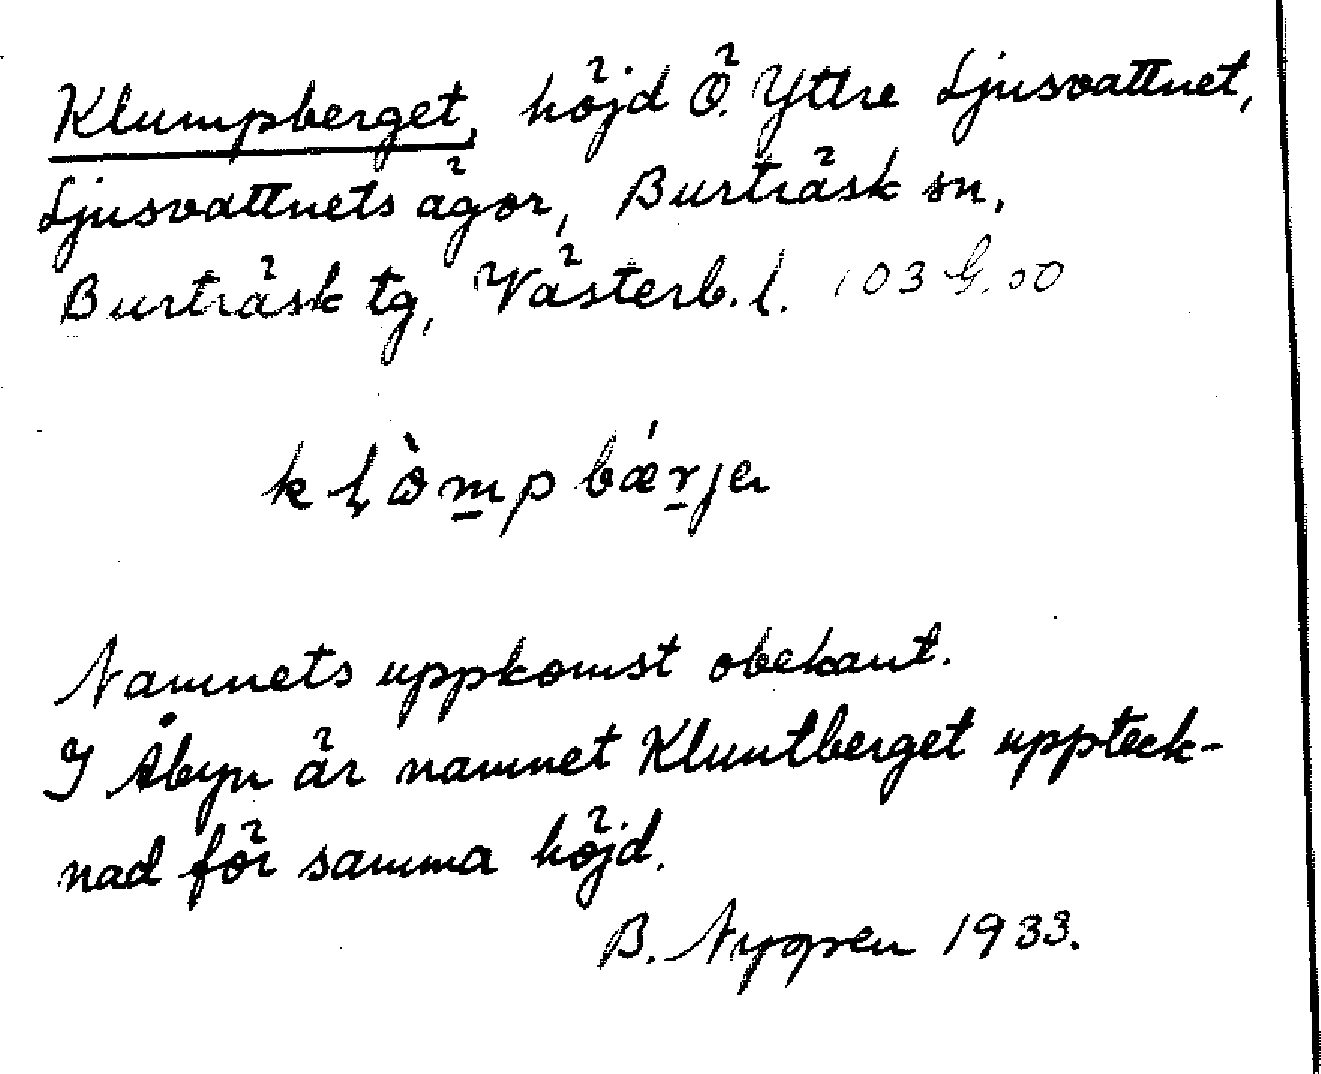 Klumpberget, höjd Ö. Yttre Ljusvattnet,
Ljusvattnets ägor, Burträsk sn,
Burträsk tg, Västerb. l. 103 G. 00
kḷò̀m̱pbǽṟjɐ
Namnets uppkomst obekant.
I Åbyn är namnet Kluntberget uppteck-
nad för samma höjd.
B. Nygren 1933.